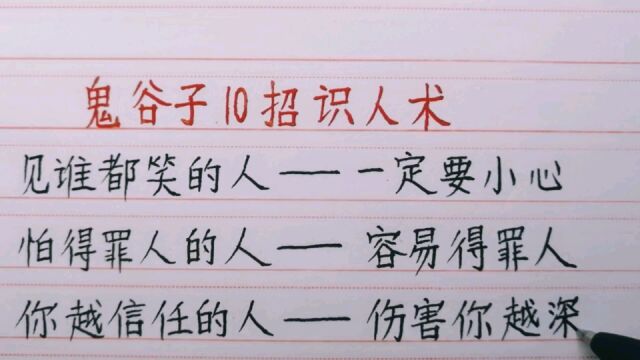 鬼谷子10招识人术
见谁都笑的人——一定要小心
怕得罪人的人——容易得罪人
你越信任的人——伤害你越深